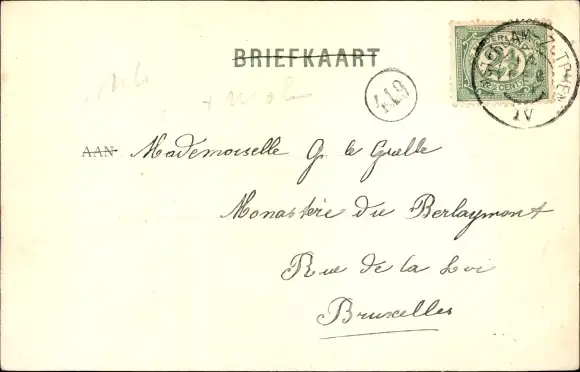 BRIEFKAART
419
NEDERLAND
2½
CENT
ZUTPHEN
IV
AAN Mademoiselle G. le Grelle
Monastère du Berlaymont
Rue de la Loi
Bruxelles